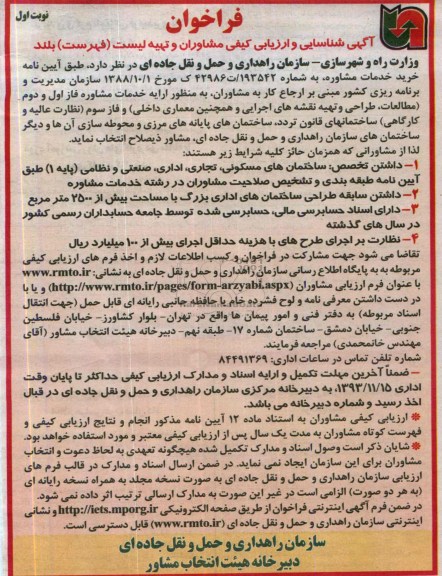 نوبت اول
فراخوان
آگهی شناسایی و ارزیابی کیفی مشاوران و تهیه لیست (فهرست) بلند
وزارت راه و شهرسازی – سازمان راهداری و حمل و نقل جاده ای در نظر دارد، طبق آیین نامه
خرید خدمات مشاوره، به شماره ۱۹۳۵۴۲/ت۴۲۹۸۶ ک مورخ ۱۳۸۸/۱۰/۱ سازمان مدیریت و
برنامه ریزی کشور مبنی بر ارجاع کار به مشاوران، به منظور ارایه خدمات مشاوره فاز اول و دوم
(مطالعات، طراحی و تهیه نقشه های اجرایی و همچنین معماری داخلی) و فاز سوم (نظارت عالیه و
کارگاهی) ساختمانهای قانون تردد، ساختمان های پایانه های مرزی و محوطه سازی آن ها و دیگر
ساختمان های سازمان راهداری و حمل و نقل جاده ای، مشاور ذیصلاح انتخاب نماید.
لذا از مشاورانی که همزمان حائز کلیه شرایط زیر هستند:
۱– داشتن تخصص: ساختمان های مسکونی، تجاری، اداری، صنعتی و نظامی (پایه ۱) طبق
آیین نامه طبقه بندی و تشخیص صلاحیت مشاوران در رشته خدمات مشاوره
۲– داشتن سابقه طراحی ساختمان های اداری بزرگ با مساحت بیش از ۲۵۰۰ متر مربع
۳– دارای اسناد حسابرسی مالی، حسابرسی شده توسط جامعه حسابداران رسمی کشور
در سال های گذشته
۴– نظارت بر اجرای طرح های با هزینه حداقل اجرای بیش از ۱۰۰ میلیارد ریال
تقاضا می شود جهت مشارکت در فراخوان و کسب اطلاعات لازم و اخذ فرم های ارزیابی کیفی
مربوطه به به پایگاه اطلاع رسانی سازمان راهداری و حمل و نقل جاده ای به نشانی: www.rmto.ir
با عنوان فرم ارزیابی مشاوران (http://www.rmto.ir/pages/form-arzyabi.aspx) و یا با
در دست داشتن معرفی نامه و لوح فشرده خام یا حافظه جانبی رایانه ای قابل حمل (جهت انتقال
اسناد مربوطه) به دفتر فنی و امور پیمان ها واقع در تهران– بلوار کشاورز– خیابان فلسطین
جنوبی– خیابان دمشق – ساختمان شماره ۱۷– طبقه نهم– دبیرخانه هیئت انتخاب مشاور (آقای
مهندس خانمحمدی) مراجعه فرمایند.
شماره تلفن تماس در ساعات اداری: ۸۴۴۹۱۳۶۹
– ضمناً آخرین مهلت تکمیل و ارایه اسناد و مدارک ارزیابی کیفی حداکثر تا پایان وقت
اداری ۱۳۹۳/۱۱/۱۵، به دبیرخانه مرکزی سازمان راهداری و حمل و نقل جاده ای در قبال
اخذ رسید و شماره دبیرخانه می باشد.
* ارزیابی کیفی مشاوران به استناد ماده ۱۲ آیین نامه مذکور انجام و نتایج ارزیابی کیفی و
فهرست کوتاه مشاوران به مدت یک سال پس از ارزیابی کیفی معتبر و مورد استفاده خواهد بود.
* شایان ذکر است وصول اسناد و مدارک تکمیل شده هیچگونه تعهدی به لحاظ دعوت و انتخاب
مشاوران برای این سازمان ایجاد نمی نماید. در ضمن ارسال اسناد و مدارک در قالب فرم های
ارزیابی سازمان راهداری و حمل و نقل جاده ای به صورت نسخه مجلد به همراه نسخه رایانه ای
(به هر دو صورت) الزامی است در غیر این صورت به مدارک ارسالی ترتیب اثر داده نمی شود.
در ضمن فرم آگهی اینترنتی فراخوان از طریق صفحه الکترونیکی http://iets.mporg.ir و نشانی
اینترنتی سازمان راهداری و حمل و نقل جاده ای (www.rmto.ir) قابل دسترسی است.
سازمان راهداری و حمل و نقل جاده ای
دبیرخانه هیئت انتخاب مشاور